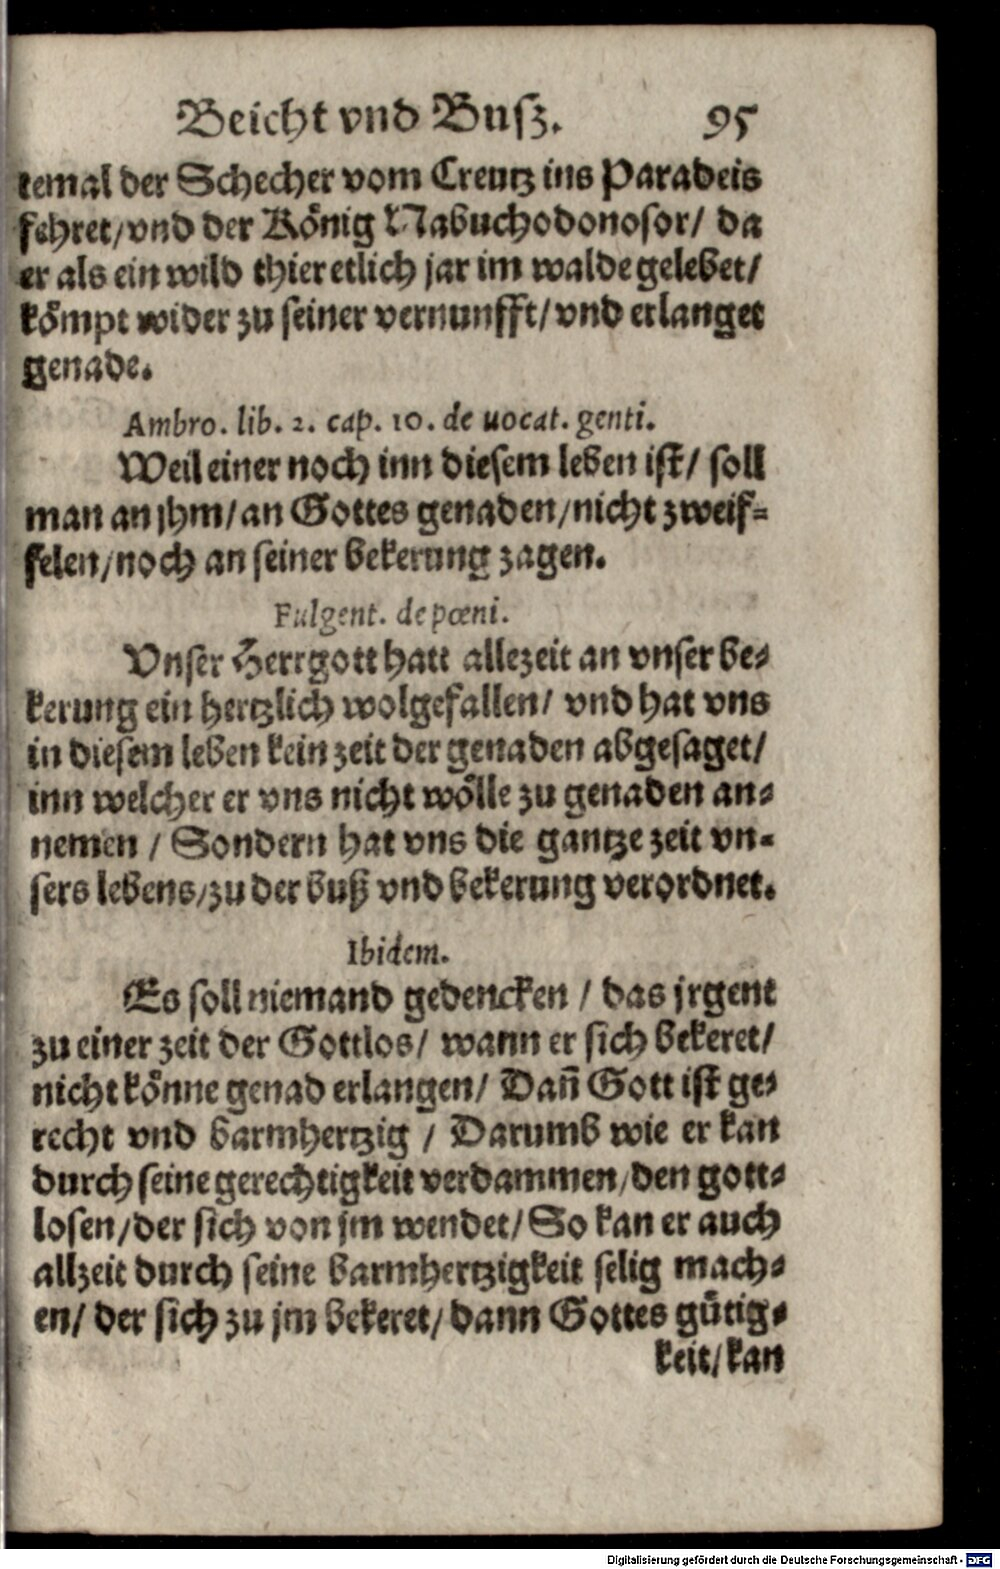 Beicht vnd Busz. 95
temal der Schecher vom Creutz ins Paradeis
fehret/vnd der König Nabuchodonosor/ da
er als ein wild thier etlich jar im walde gelebet/
kömpt wider zu seiner vernunfft/vnd erlanget
genade.
Ambro. lib. 2. cap. 10. de uocat. genti.
Weil einer noch inn diesem leben ist/ soll
man an jhm/an Gottes genaden/nicht zweif-
felen/noch an seiner bekerung zagen.
Fulgent. de pœni.
Vnser Herrgott hatt allezeit an vnser be-
kerung ein hertzlich wolgefallen/ vnd hat vns
in diesem leben kein zeit der genaden abgesaget/
inn welcher er vns nicht wölle zu genaden an-
nemen / Sondern hat vns die gantze zeit vn-
sers lebens/zu der buß vnd bekerung verordnet.
Ibidem.
Es soll niemand gedencken / das jrgent
zu einer zeit der Gottlos/ wann er sich bekeret/
nicht könne genad erlangen/ Dañ Gott ist ge-
recht vnd barmhertzig / Darumb wie er kan
durch seine gerechtigkeit verdammen/den gott-
losen/der sich von jm wendet/ So kan er auch
allzeit durch seine barmhertzigkeit selig mach-
en/ der sich zu jm bekeret/dann Gottes gütig-
keit/kan
Digitalisierung gefördert durch die Deutsche Forschungsgemeinschaft - DFG